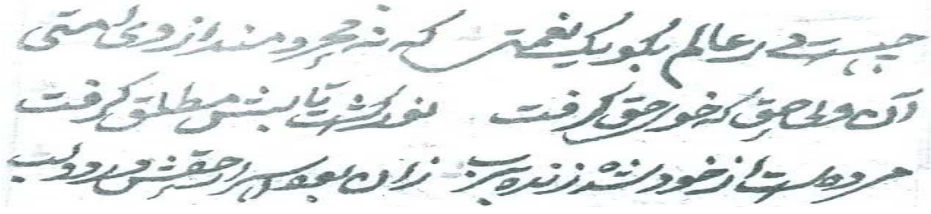 چیست در عالم بگو یک نعمتی که نه محرومند از وی امتی
آن ولی حق که خوی حق گرفت نور گشت و تابش مطلق گرفت
مرده است از خود شده زنده برب زان بود اسرار حقش در دو لب